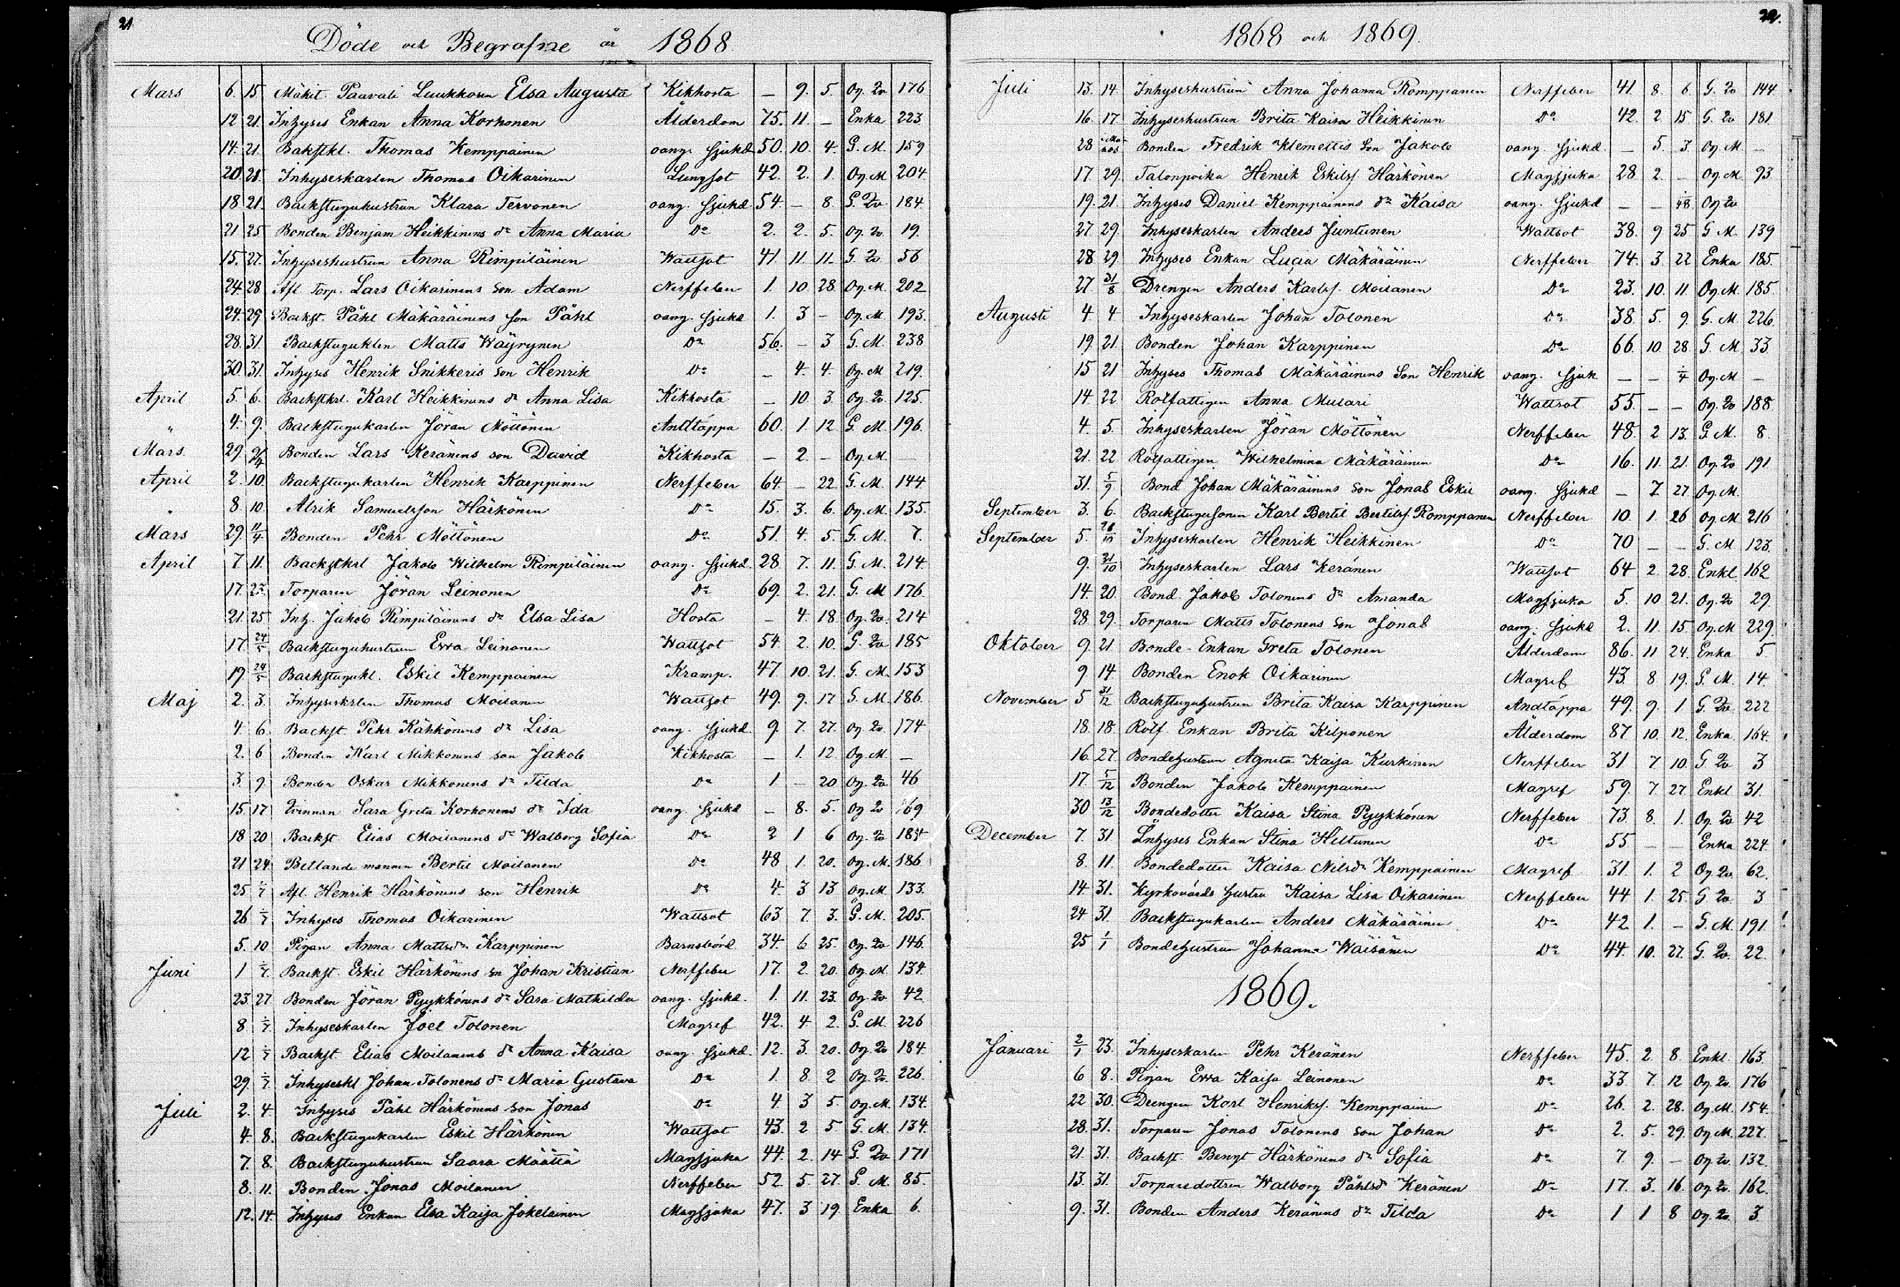 21
Döde och Begrafne år 1868.
Mars 6. 15 Mäkit. Paavali Luukkosen Elsa Augusta Kikhosta – 9. 5. Og. Qv 176
12 21. Inhyses Enkan Anna Korhonen Ålderdom 75. 11. – Enka 223
14. 21 Bakstkl. Thomas Kemppainen oang. sjukd 50. 10. 4. G. M. 159
20. 21 Inhyseskarlen Thomas Oikarinen Lungsot 42. 2. 1. Og M. 204
18. 21. Backstuguhustrun Klara Tervonen oang. sjukd 54. – 8. G. Qv 184.
21 25 Bonden Benjam Heikkinens dr Anna Maria Do 2. 2. 5. Og. Qv. 19.
15. 27. Inhyseshustrun Anna Rimpiläinen Wattsot 41 11. 11. G. Qv 56
24. 28 Afl. Torp. Lars Oikarinens son Adam Nerffeber 1. 10. 28. Og. M. 202
24. 29 Backst. Påhl Mäkäräinens son Påhl oang. sjukd 1. 3 – Og. M. 193.
28. 31 Backstugukarlen Matts Wäyrynen Do 56. – 3 G. M. 238
30. 31. Inhyses Henrik Snikkeris son Henrik Do – 4. 4. Og M. 219.
April 5. 6. Backstkrl. Karl Heikkinens dr Anna Lisa Kikhosta – 10. 3 Og. Qv. 125.
" 4. 9. Backstugukarlen Jöran Möttönen Andtäppa 60. 1. 12 G. M. 196.
Mars 29. 2/4 Bonden Lars Keränens son David Kikhosta – 2. – Og. M. –
April 2. 10. Backstugukarlen Henrik Karppinen Nerffeber 64. – 22 G. M. 144
" 8. 10. Alrik Samuelsson Härkönen Do 15. 3. 6. Og. M. 135.
Mars 29. 11/4 Bonden Pehr Möttönen Do 51. 4. 5. G. M. 7.
April 7. 11. Backstkrl Jakob Wilhelm Rimpiläinen oang. sjukd. 28 7. 11. G. M. 214
17. 23 Torparen Jöran Leinonen Do 69. 2. 21. G. M 176.
21 25 Inh. Jakob Rimpiläinens dr Elsa Lisa Hosta – 4. 18. Og. Qv. 214
17 24/5 Backstuguhustrun Ewa Leinonen Wattsot 54. 2. 10. G. Qv 185
19 24/5 Backstugukl. Eskil Kemppainen Kramp. 47 10. 21. G. M. 153
Maj 2. 3. Inhyseskarlen Thomas Moilanen Wattsot 49. 9. 17 G. M 186.
4. 6. Backst. Pehr Kähkönens dr Lisa oang. sjukd. 9. 7. 27. Og. Qv. 174
2. 6 Bonden Karl Mikkonens son Jakob Kikhosta – 1. 12 Og. M. –
3. 9 Bonden Oskar Mikkonens dr Tilda Do 1 – 20 Og. Qv 46
15. 17 Qvinnan Sara Greta Korkonens dr Ida oang. sjukd – 8. 5. Og. Qv 169
18 20 Backst Elias Moilanens dr Walborg Sofia Do 2 1 6 Og. Qv 184
21 24. Betlande mannen Bertil Moilanen Do 48 1. 20. Og. M. 186
25 1/7 Afl. Henrik Härkönens son Henrik Do 4. 3 13 Og. M. 133.
26 1/7 Inhyses Thomas Oikarinen Wattsot 63 7. 3. G. M. 205.
5. 10 Pigan Anna Mattsdr. Karppinen Barnsbörd 34. 6 25. Og. Qv 146.
Juni 1 1/7. Backst. Eskil Härkönens son Johan Kristian Nerffeber 17. 2. 20. Og. M. 134.
23. 27. Bonden Jöran Pyykkönens dr Sara Mathilda oang. sjukd. 1. 11. 23. Og. Qv 42
8. 1/7. Inhyseskarlen Joel Tolonen Magref 42. 4 2. G. M. 226
12 1/7 Backst Elias Moilanens dr Anna Kaisa oang. sjukd. 12. 3. 20. Og. Qv 184.
29. 1/7 Inhyseskl Johan Tolonens dr Maria Gustava Do 1. 8 2 Og. Qv. 226.
Juli 2. 4. Inhyses Påhl Härkönens son Jonas Do 4. 3 5. Og. M. 134.
4. 8. Backstugukarlen Eskil Härkönen Wattsot 43. 2 5 G. M. 134.
7. 8. Backstuguhustrun Saara Määttä Magsjuka 44. 2. 14 G. Qv 171
8. 11. Bonden Jonas Moilanen Nerffeber 52. 5. 27. G. M. 85.
12. 14. Inhyses Enkan Elsa Kaisa Jokelainen Magsjuka 47. 3 19 Enka 6.
22.
1868 och 1869.
Juli 13. 14. Inhyseshustrun Anna Johanna Romppanen Nerffeber 41 8. 6. G. Qv 144.
16. 17 Inhyseshustrun Brita Kaisa Heikkinen Do 42. 2 15 G. Qv 181.
28 Bonden Fredrik Klemettis Son Jakob oang. sjukd – 5. 3. Og M. –
17 29. Talonpoika Henrik Eskilss. Härkönen Magsjuka 28 2. – Og M. 93
19. 21. Inhyses Daniel Kemppainens dr Kaisa oang. sjukd – – 1/48 Og. Qv
27 29 Inhyseskarlen Anders Juntunen Wattsot 38. 9 25 G M. 139
28 29 Inhyses Enkan Lucia Mäkäräinen Nerffeber 74. 3. 22 Enka 185.
27 31/8 Drengen Anders Karlss. Moilanen Do 23. 10. 11. Og. M. 185.
Augusti 4 4 Inhyseskarlen Johan Tolonen Do 38. 5. 9. G. M. 226.
19 21 Bonden Johan Karppinen Do 66. 10 28. G. M 33
15 21 Inhyses Thomas Mäkäräinens Son Henrik oang. sjuk – – 1/4 Og M –
14. 22 Rotfattigen Anna Musari Wattsot 55. – – Og. Qv 188.
4. 5. Inhyseskarlen Jöran Möttönen Nerffeber 48. 2 13. G. M. 8.
21. 22 Rotfattigen Wilhelmina Mäkäräinen Do 16. 11. 21. Og. Qv 191
31. 1/9 Bond Johan Mäkäräinens Son Jonas Eskil oang. sjukd – 7 27 Og M.
September 3. 6. Backstugusonen Karl Bertil Bertilss Romppanen Nerffeber 10. 1. 26 Og. M 216
September 5. 20/10 Inhyseskarlen Henrik Heikkinen Do 70 – – G. M 123.
9. 21/10 Inhyseskarlen Lars Keränen Wattsot 64 2. 28. Enkl 162
14. 20. Bond. Jakob Tolonens dr Amanda Magsjuka 5. 10 21. Og. Qv 29.
28. 29. Torparen Matts Tolonens son Jonas oang. sjukd 2. 11 15 Og M 229.
Oktober 9. 21 Bonde-Enkan Greta Tolonen Ålderdom 86. 11 24. Enka 5
9 14 Bonden Enok Oikarinen Magref 43 8 19. G. M. 14.
November 5 31/12 Backstuguhustrun Brita Kaisa Karppinen Andtäppa 49 9. 1 G. Qv. 222
18. 18. Rotf. Enkan Brita Kilponen Ålderdom 87 10. 12. Enka. 164.
16. 27. Bondehustrun Agneta Kaisa Kurkinen Nerffeber 31 7 10 G Qv 3
17 5/12 Bonden Jakob Kemppainen Magref 59 7 27. Enkl 31.
30 13/12 Bondedotter Kaisa Stina Pyykkönen Nerffeber 73. 8. 1. Og. Qv. 42
December 7. 31 Inhyses Enkan Stina Hiltunen Do 55 – – Enka 224
8. 11 Bondedotter Kaisa Nilsdr Kemppainen Magref 31. 1. 2 Og. Qv. 62.
14 31. Kyrkovärds hustru Kaisa Lisa Oikarinen Nerffeber 44 1. 25 G Qv. 3
24 31. Backstugukarlen Anders Mäkäräinen Do 42 1. – G. M. 191.
25 1/1 Bondehustrun Johanna Wäisänen Do 44. 10. 27. G. Qv. 22.
1869.
Januari 2/1 23. Inhyseskarlen Pehr Keränen Nerffeber 45. 2 8. Enkl. 163.
6 8. Pigan Ewa Kaisa Leinonen Do 33 7. 12 Og. Qv. 176
22 30. Drengen Karl Henrikss. Kemppainen Do 26. 2. 28. Og. M. 154.
28. 31. Torparen Jonas Tolonens Son Johan Do 2. 5. 29. Og M. 227.
21 31. Backst Bengt Härkönens dr Sofia Do 7. 9. – Og. Qv. 132.
13. 31. Torparedottren Walborg Påhlsdr Keränen Do 17. 3. 16. Og. Qv. 162.
9. 31. Bonden Anders Keränens dr Tilda Do 1 1 8 Og. Qv. 3